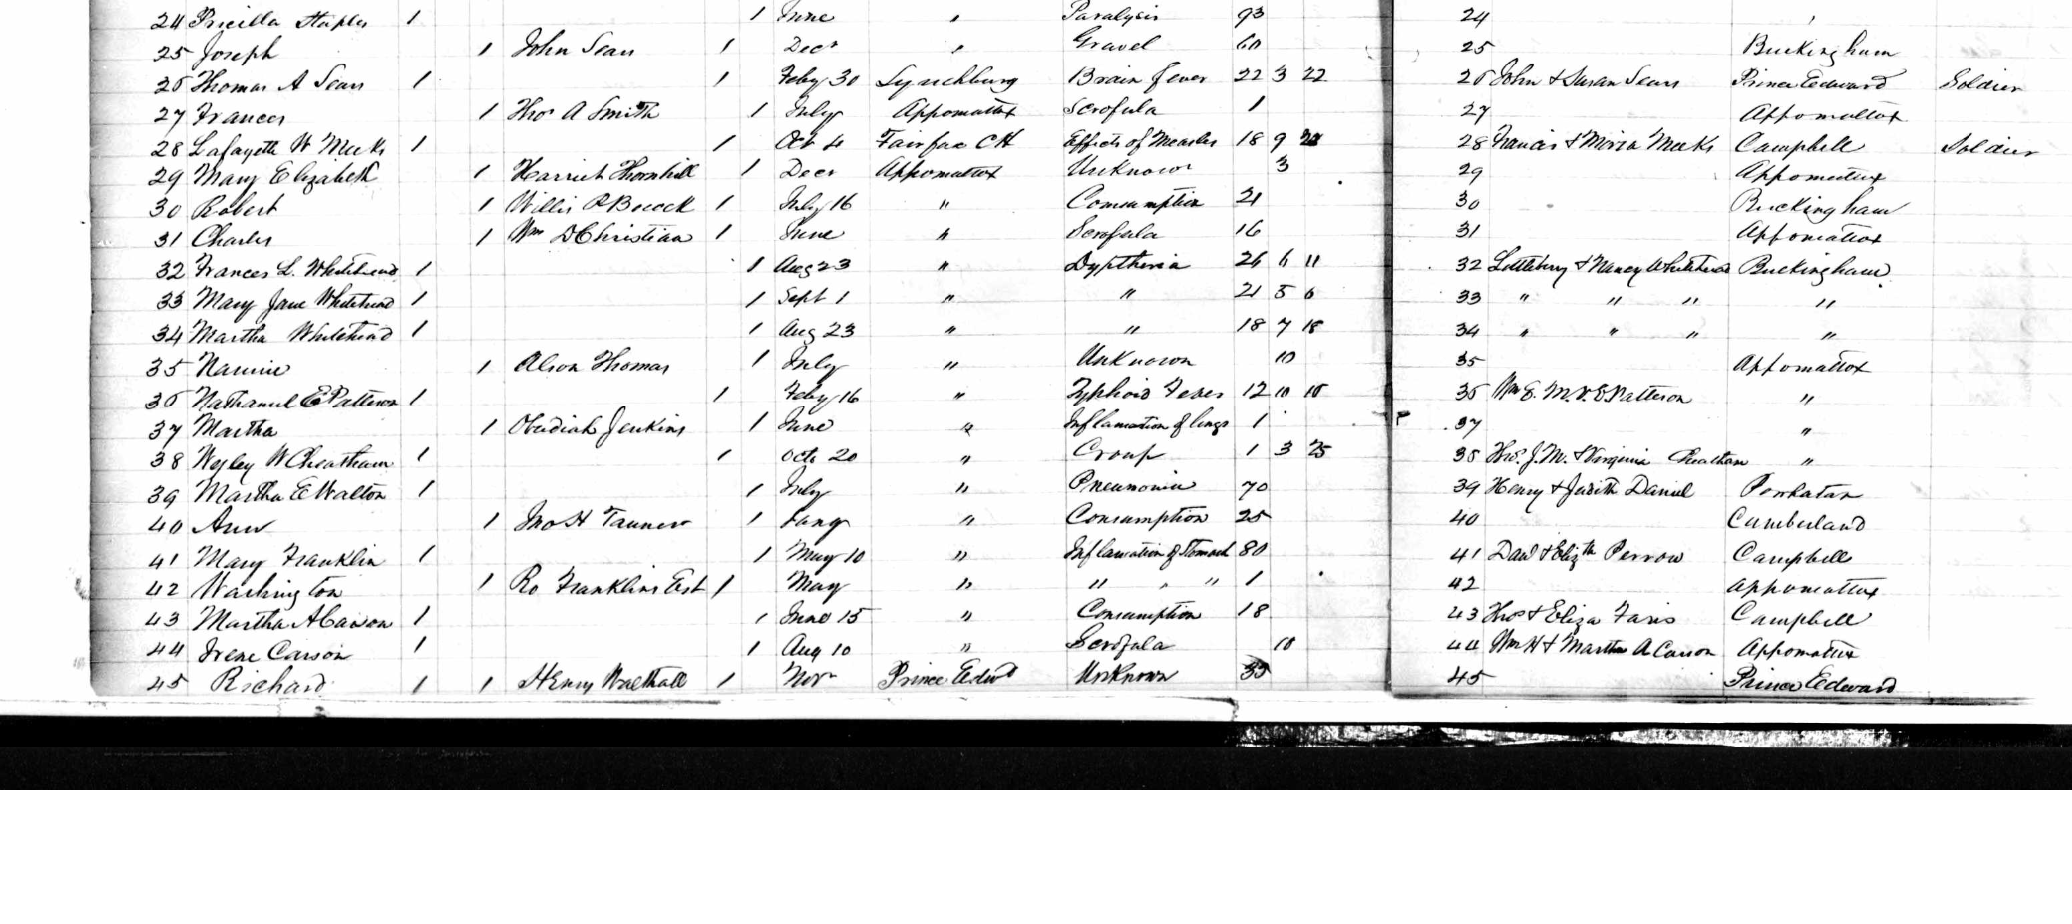 24 Pricilla Staples 1 1 June " Paralysis 93 24
25 Joseph 1 John Sears 1 Decr " Gravel 60 25 Buckingham
26 Thomas A Sears 1 1 Feby 30 Lynchburg Brain fever 22 3 22 26 John & Susan Sears Prince Edward Soldier
27 Frances 1 Thos A Smith 1 July Appomattox Scrofula 1 27 Appomattox
28 Lafayette W Meeks 1 1 Oct 4 Fairfax CH Effects of Measles 18 9 28 Francis & Maria Meeks Campbell Soldier
29 Mary Elizabeth 1 Harriet Thornhill 1 Decr Appomattox Unknown 3 29 Appomattox
30 Robert 1 Willis P Bocock 1 July 16 " Consumption 21 30 Buckingham
31 Charles 1 Wm D Christian 1 June " Scrofula 16 31 Appomattox
32 Frances L. Whitehead 1 1 Aug 23 " Dyptheria 26 6 11 32 Littlebery & Nancy Whitehead Buckingham
33 Mary Jane Whitehead 1 1 Sept 1 " " 21 5 6 33 " " " "
34 Martha Whitehead 1 1 Aug 23 " " 18 7 18 34 " " " "
35 Nannie 1 Alson Thomas 1 July " Unknown 10 35 Appomattox
36 Nathaniel E Patterson 1 1 Feby 16 " Typhoid Fever 12 10 10 36 Wm E. M. & E Patterson "
37 Martha 1 Obediah Jenkins 1 June " Inflamation of lungs 1 37 "
38 Wesley W Cheatham 1 1 Octo 20 " Croup 1 3 25 38 Thos. J. M. & Virginia Cheatham "
39 Martha E Walton 1 1 July " Pneumonia 70 39 Henry & Judith Daniel Powhatan
40 Ann 1 Jno H Tanner 1 Jany " Consumption 25 40 Cumberland
41 Mary Franklin 1 1 May 10 " Inflamation of Stomach 80 41 Danl & Elizth Perrow Campbell
42 Washington 1 Ro Franklins Est 1 May " " " " 1 42 Appomattox
43 Martha A Carson 1 1 June 15 " Consumption 18 43 Thos & Eliza Faris Campbell
44 Irene Carson 1 1 Aug 10 " Scrofula 10 44 Wm H & Martha A Carson Appomattox
45 Richard 1 1 Henry Walthall 1 Novr Prince Edwd Unknown 35 45 Prince Edward